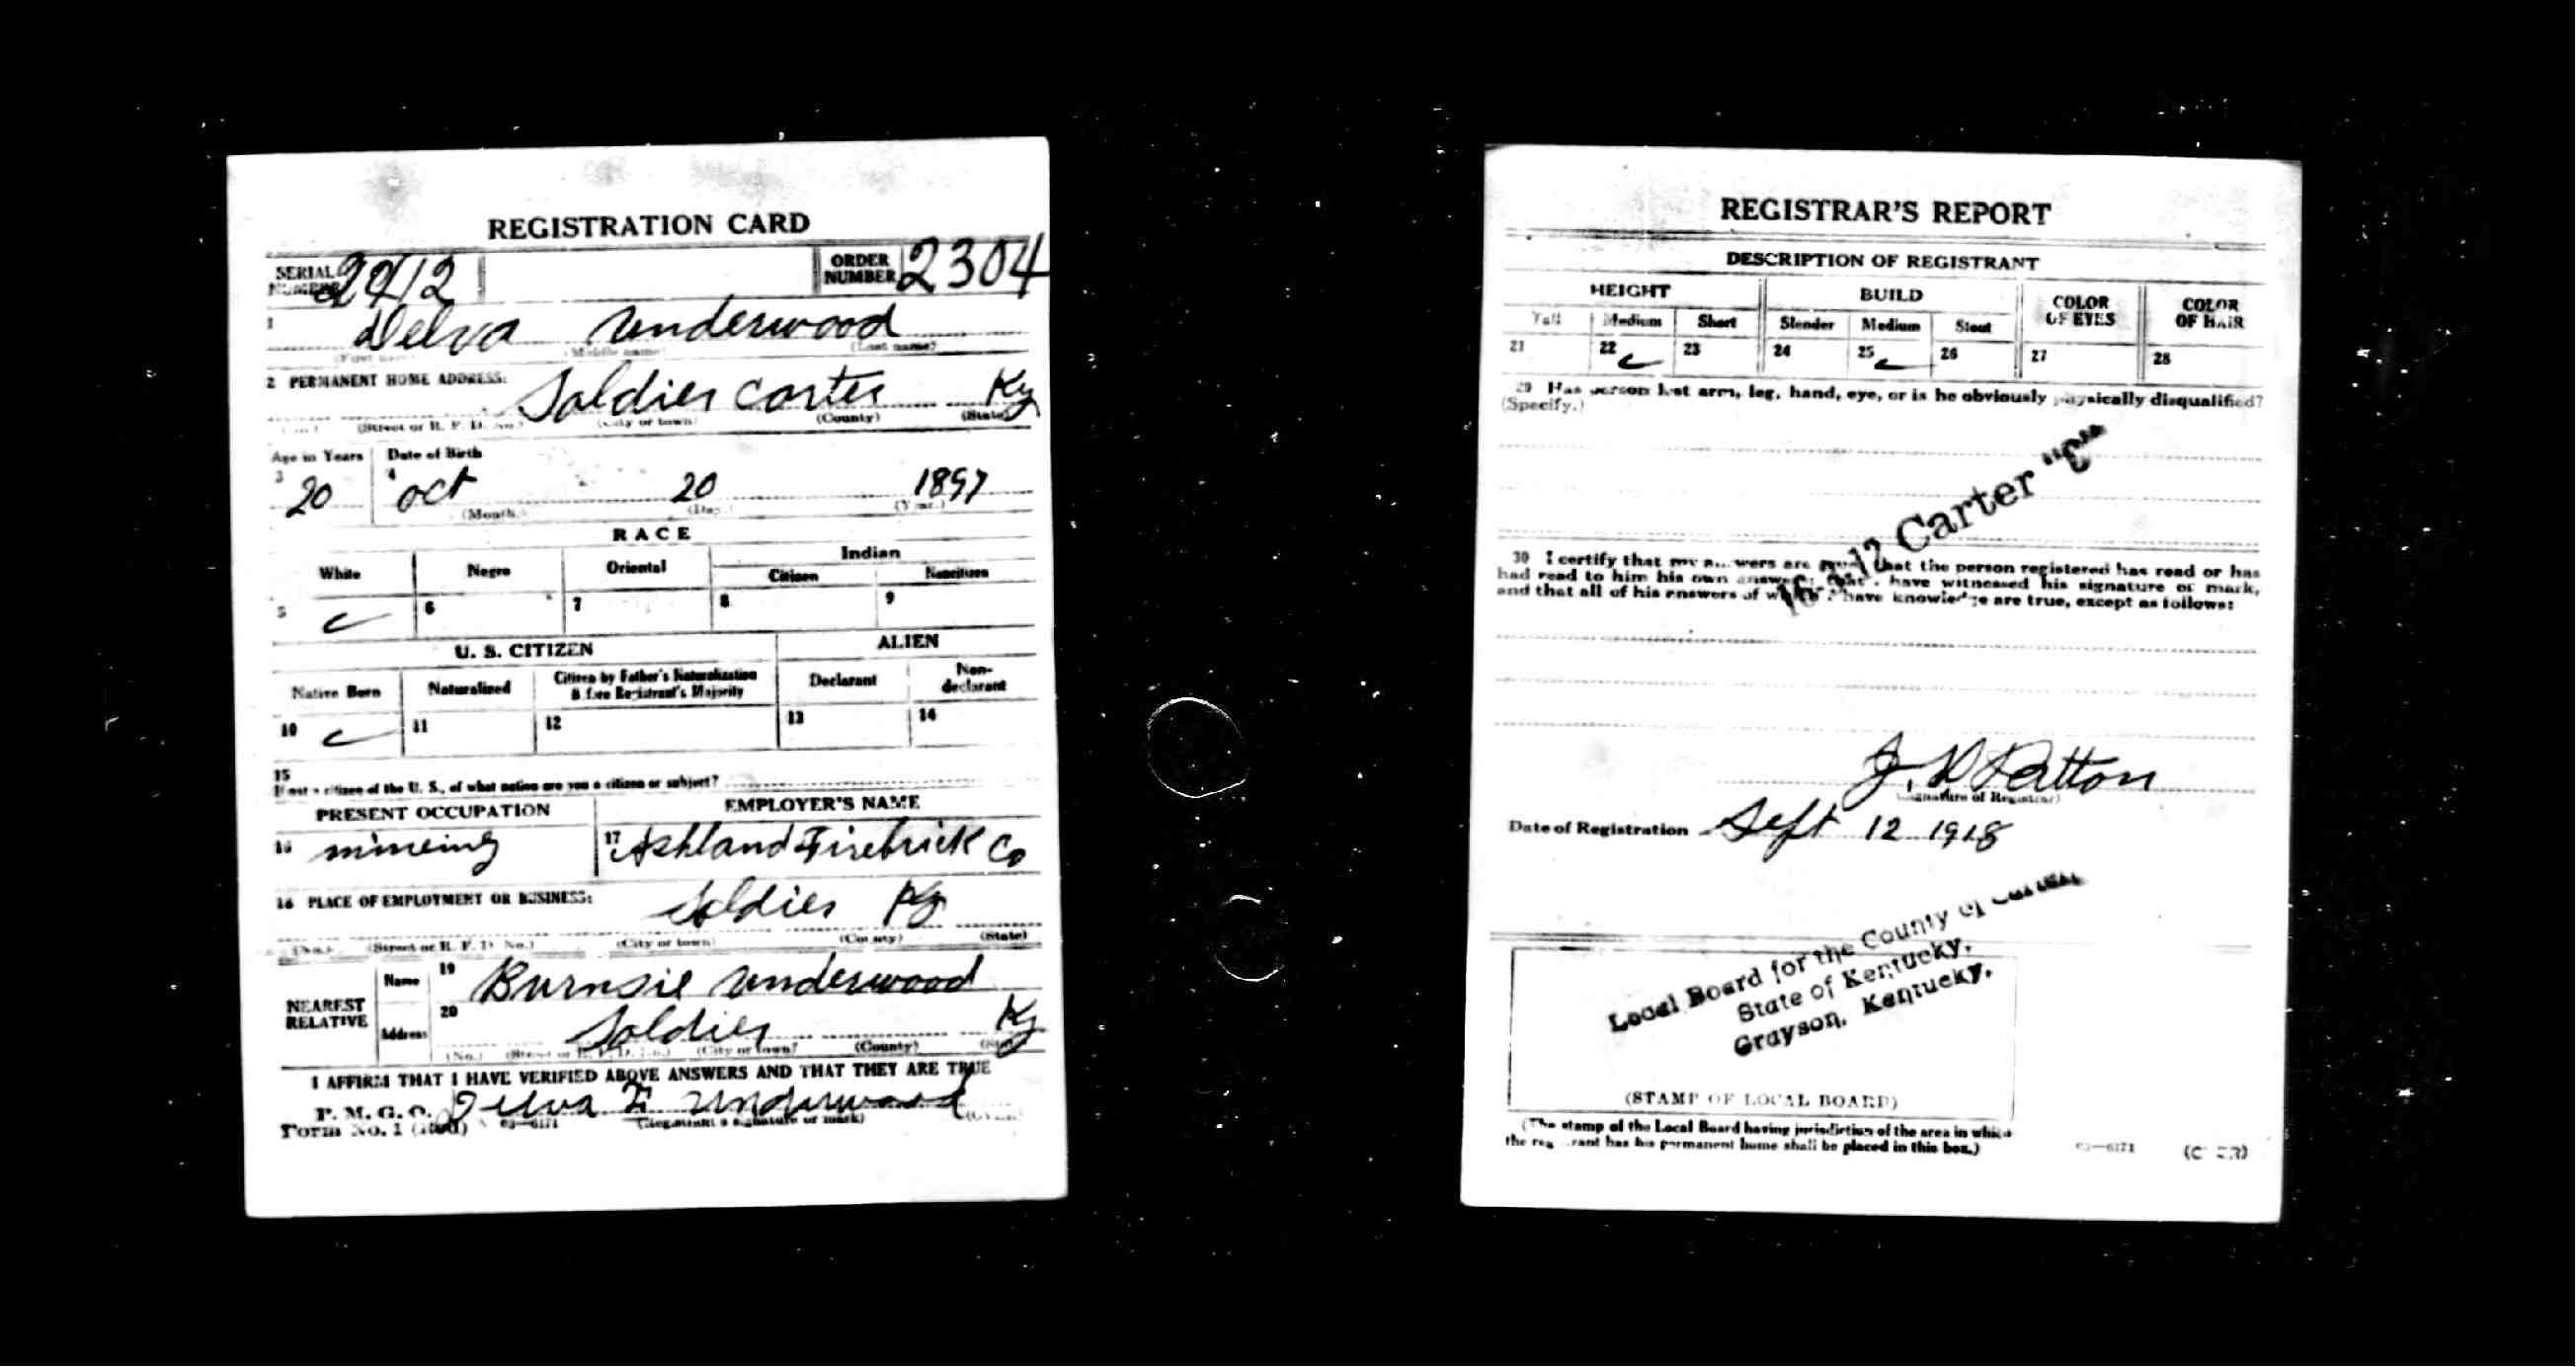 REGISTRATION CARD
SERIAL NUMBER 2412 ORDER NUMBER 2304
1 Delva Underwood
(First name) (Middle name) (Last name)
2 PERMANENT HOME ADDRESS: Soldier Carter Ky
(No.) (Street or R. F. D. No.) (City or town) (County) (State)
Age in Years Date of Birth
3 20 4 Oct 20 1897
(Month.) (Day.) (Year.)
RACE
White Negro Oriental Indian
Citizen Noncitizen
5 6 7 8 9
U. S. CITIZEN ALIEN
Native Born Naturalized Citizen by Father's Naturalization Before Registrant's Majority Declarant Non-declarant
10 11 12 13 14
15
If not a citizen of the U. S., of what nation are you a citizen or subject?
PRESENT OCCUPATION EMPLOYER'S NAME
16 mineing 17 Ashland Firebrick Co
18 PLACE OF EMPLOYMENT OR BUSINESS: Soldier Ky
(No.) (Street or R. F. D. No.) (City or town) (County) (State)
NEAREST RELATIVE Name 19 Burnsie Underwood
Address 20 Soldier Ky
(No.) (Street or R. F. D. No.) (City or town) (County) (State)
I AFFIRM THAT I HAVE VERIFIED ABOVE ANSWERS AND THAT THEY ARE TRUE
P. M. G. O.
Form No. 1 (Red) 03—6171 Delva F Underwood
(Registrant's signature or mark) (OVER)
REGISTRAR'S REPORT
DESCRIPTION OF REGISTRANT
HEIGHT BUILD COLOR OF EYES COLOR OF HAIR
Tall Medium Short Slender Medium Stout
21 22 23 24 25 26 27 28
29 Has person lost arm, leg, hand, eye, or is he obviously physically disqualified?
(Specify.)
Carter "C"
30 I certify that my answers are true; that the person registered has read or has
had read to him his own answers; that I have witnessed his signature or mark,
and that all of his answers of which I have knowledge are true, except as follows:
J. D. Patton
(Signature of Registrar)
Date of Registration Sept 12 1918
Local Board for the County of Carter
State of Kentucky,
Grayson, Kentucky.
(STAMP OF LOCAL BOARD)
(The stamp of the Local Board having jurisdiction of the area in which
the registrant has his permanent home shall be placed in this box.)
03—6171 (OVER)